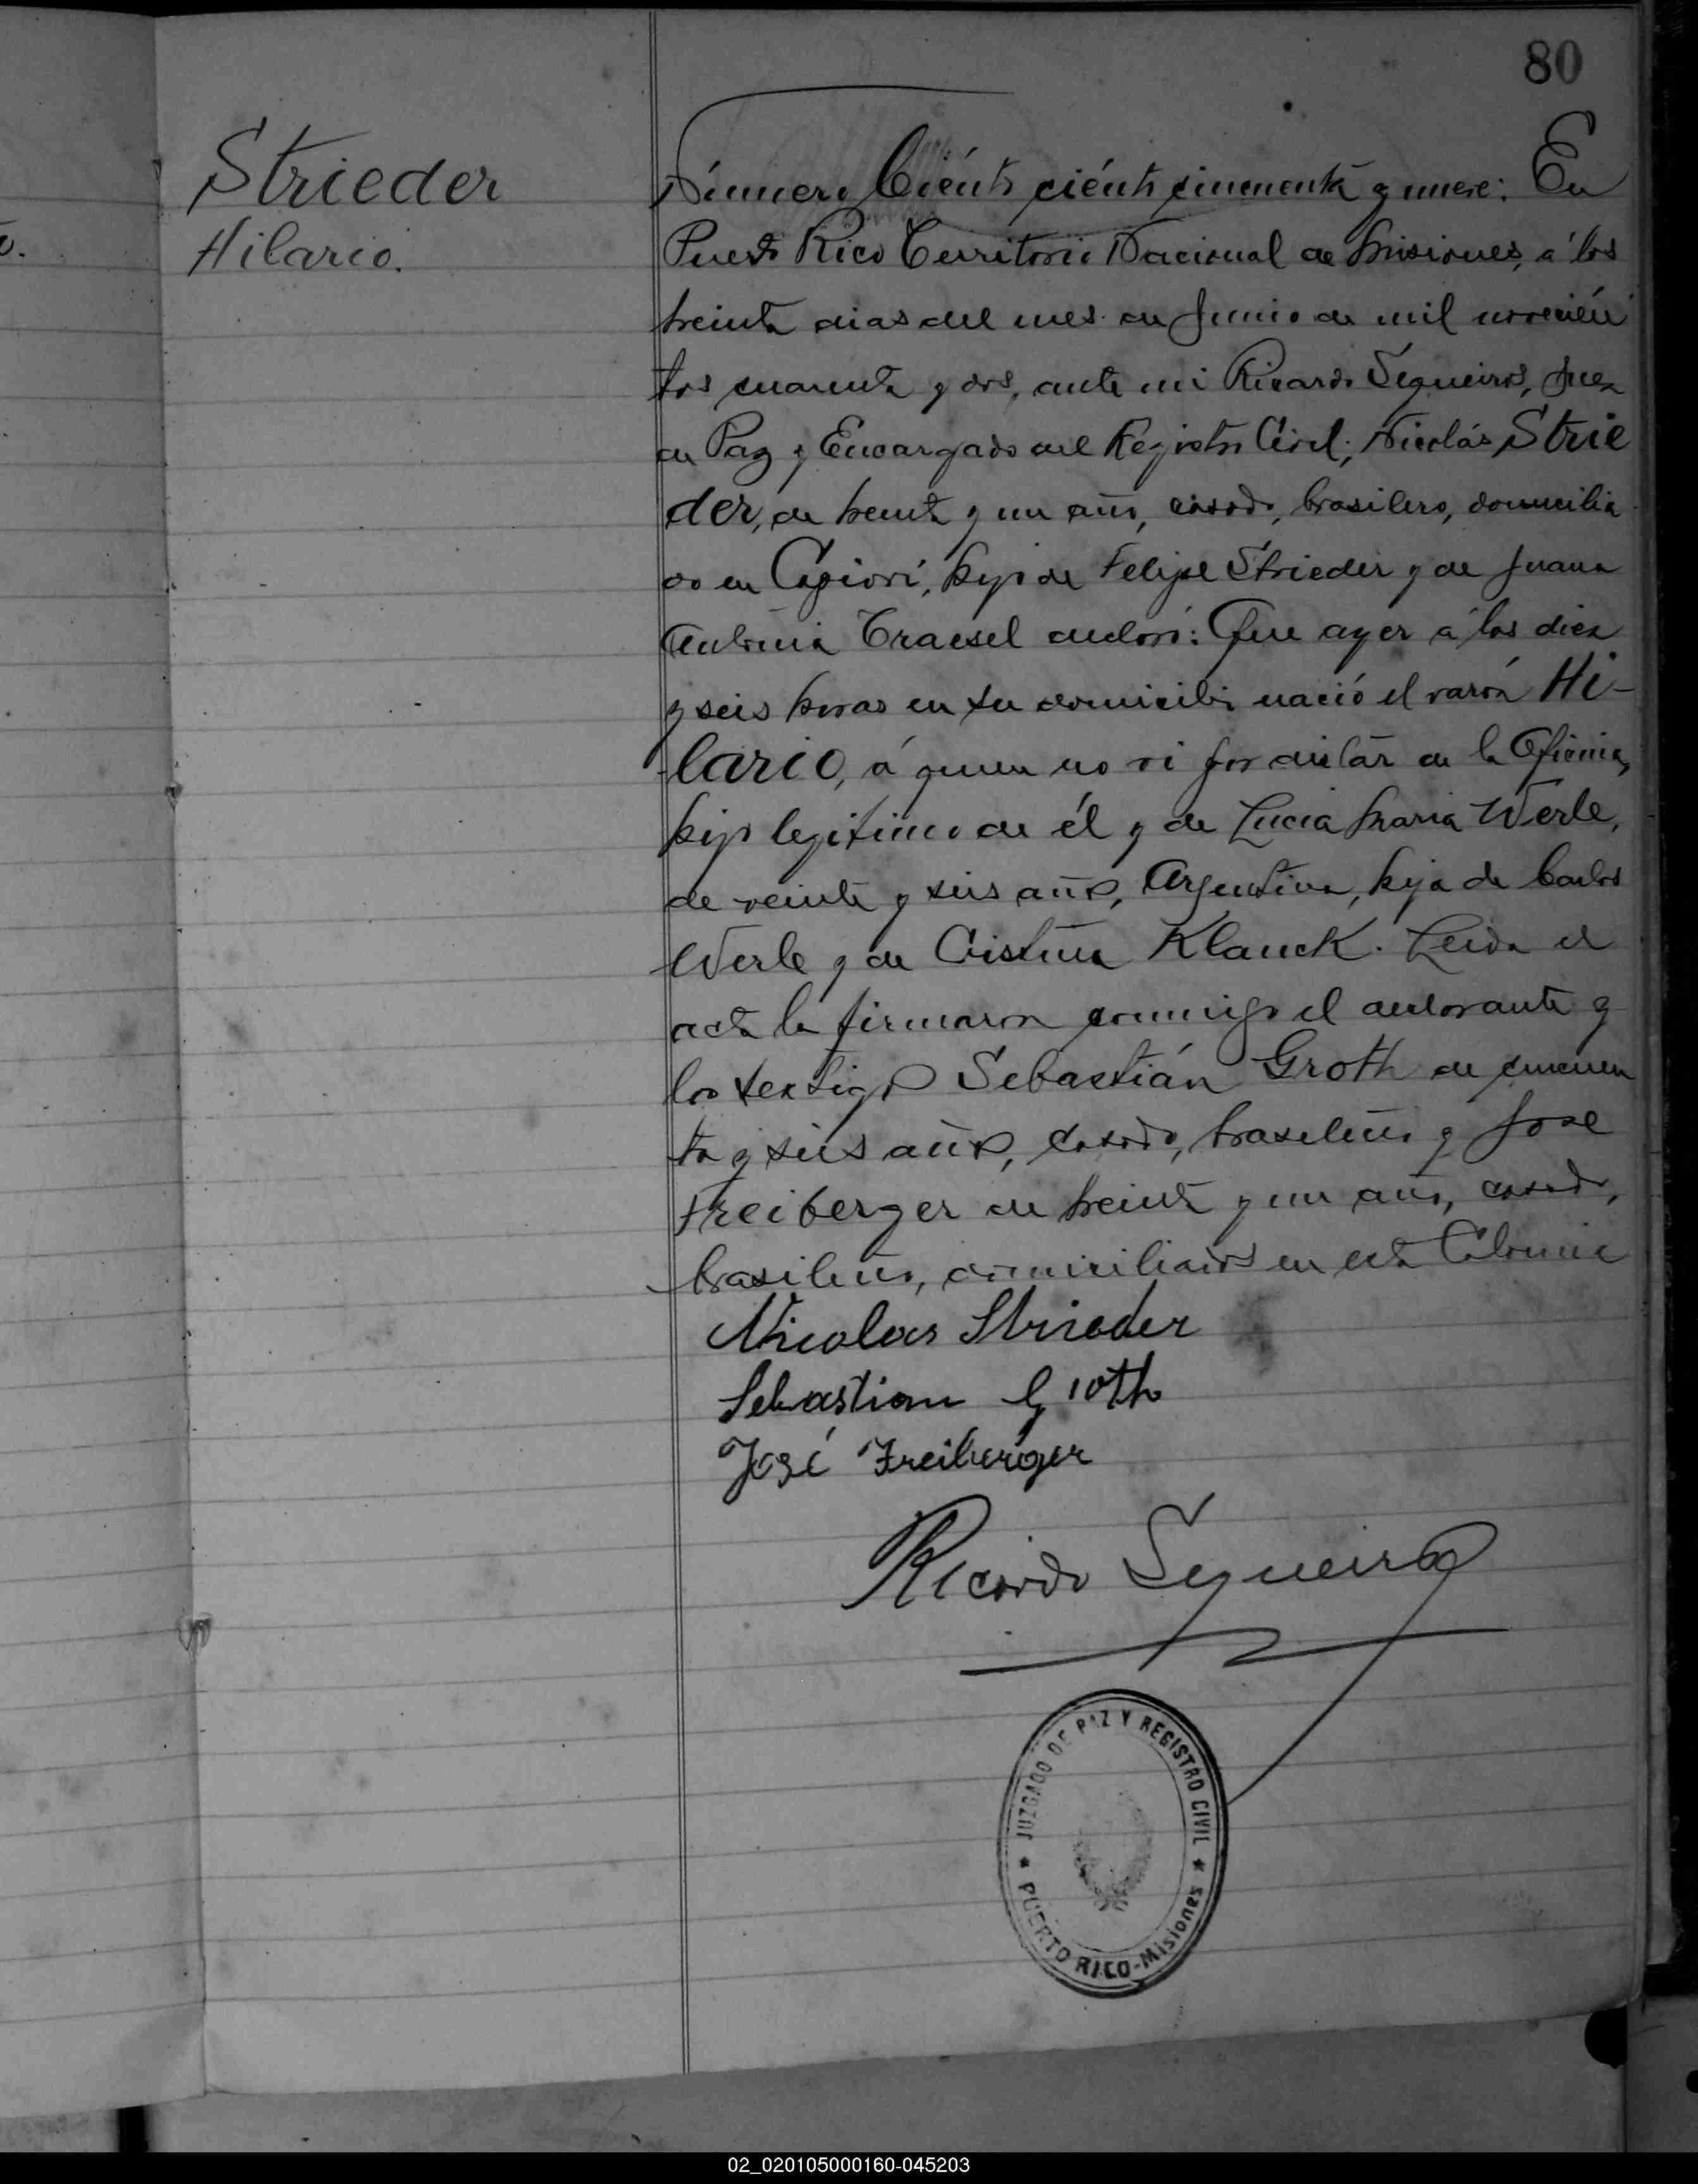 80
Strieder
Hilario.
Número Ciento ciento cincuenta y nueve: En
Puerto Rico Territorio Nacional de Misiones, á los
treinta dias del mes de Junio de mil novecien
tos cuarenta y dos, ante mi Ricardo Sequeiros, Juez
de Paz y Encargado del Registro Civil; Nicolás Strie
der, de treinta y un año, casado, brasilero, domicilia
do en Capioví, hijo de Felipe Strieder y de Juana
Antonia Traesel declaró: Que ayer á las diez
y seis horas en su domicilio nació el varón Hi-
lario, á quien no vi por distar de la Oficina,
hijo legitimo de él y de Lucia Maria Werle,
de veinte y seis años, Argentina, hija de Carlos
Werle y de Cristina Klauck. Leida el
acta la firmaron conmigo el declarante y
los testigos Sebastián Groth de cincuen
ta y seis años, casado, brasileño y José
Freiberger de treinta y un año, casado,
brasileño, domiciliados en esta Colonia
Nicolas Strieder
Sebastian Groth
José Freiberger
Ricardo Sequeiros
JUZGADO DE PAZ Y REGISTRO CIVIL
★ PUERTO RICO-Misiones ★
02_020105000160-045203